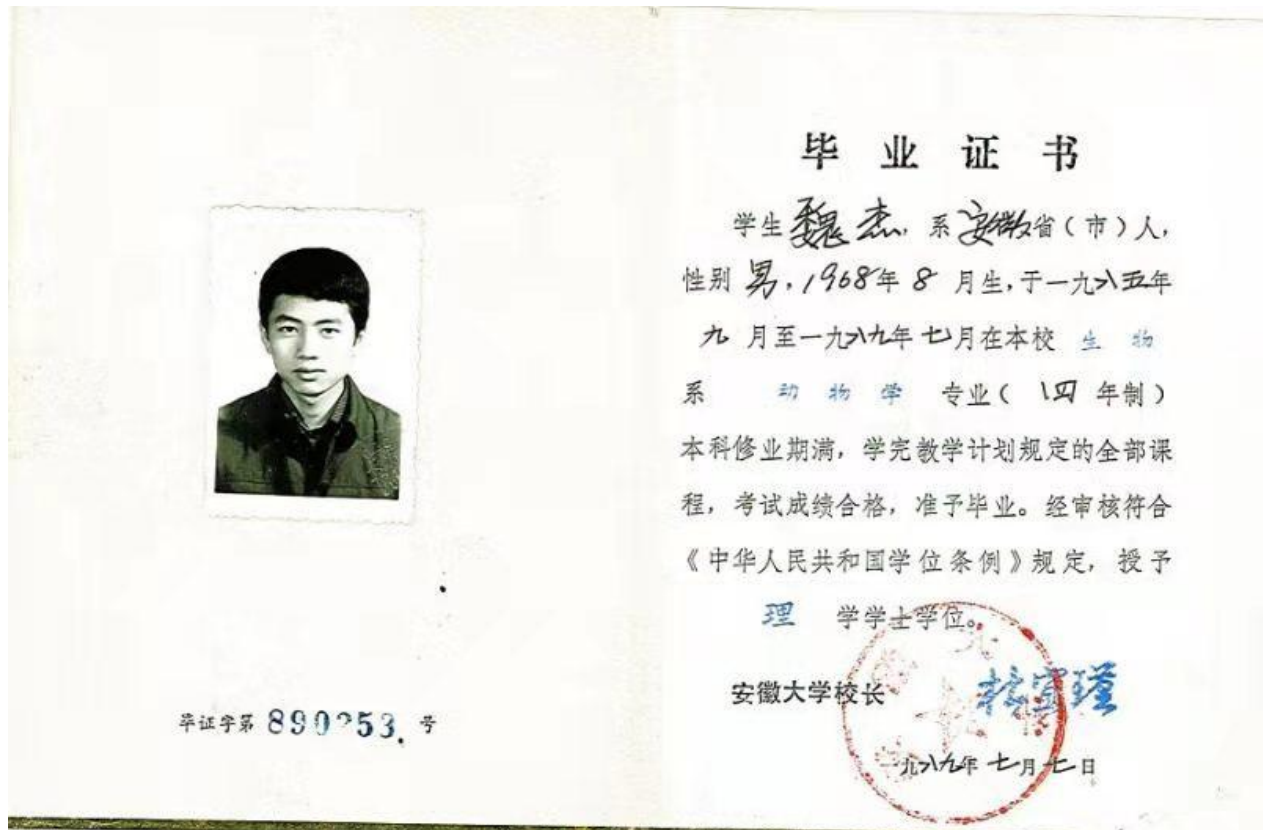 毕证字第 890253 号
毕业证书
学生魏杰，系安徽省（市）人，
性别男，1968年8月生，于一九八五年
九月至一九八九年七月在本校生物
系 动物学 专业（四年制）
本科修业期满，学完教学计划规定的全部课
程，考试成绩合格，准予毕业。经审核符合
《中华人民共和国学位条例》规定，授予
理 学学士学位。
安徽大学校长
一九八九年七月七日